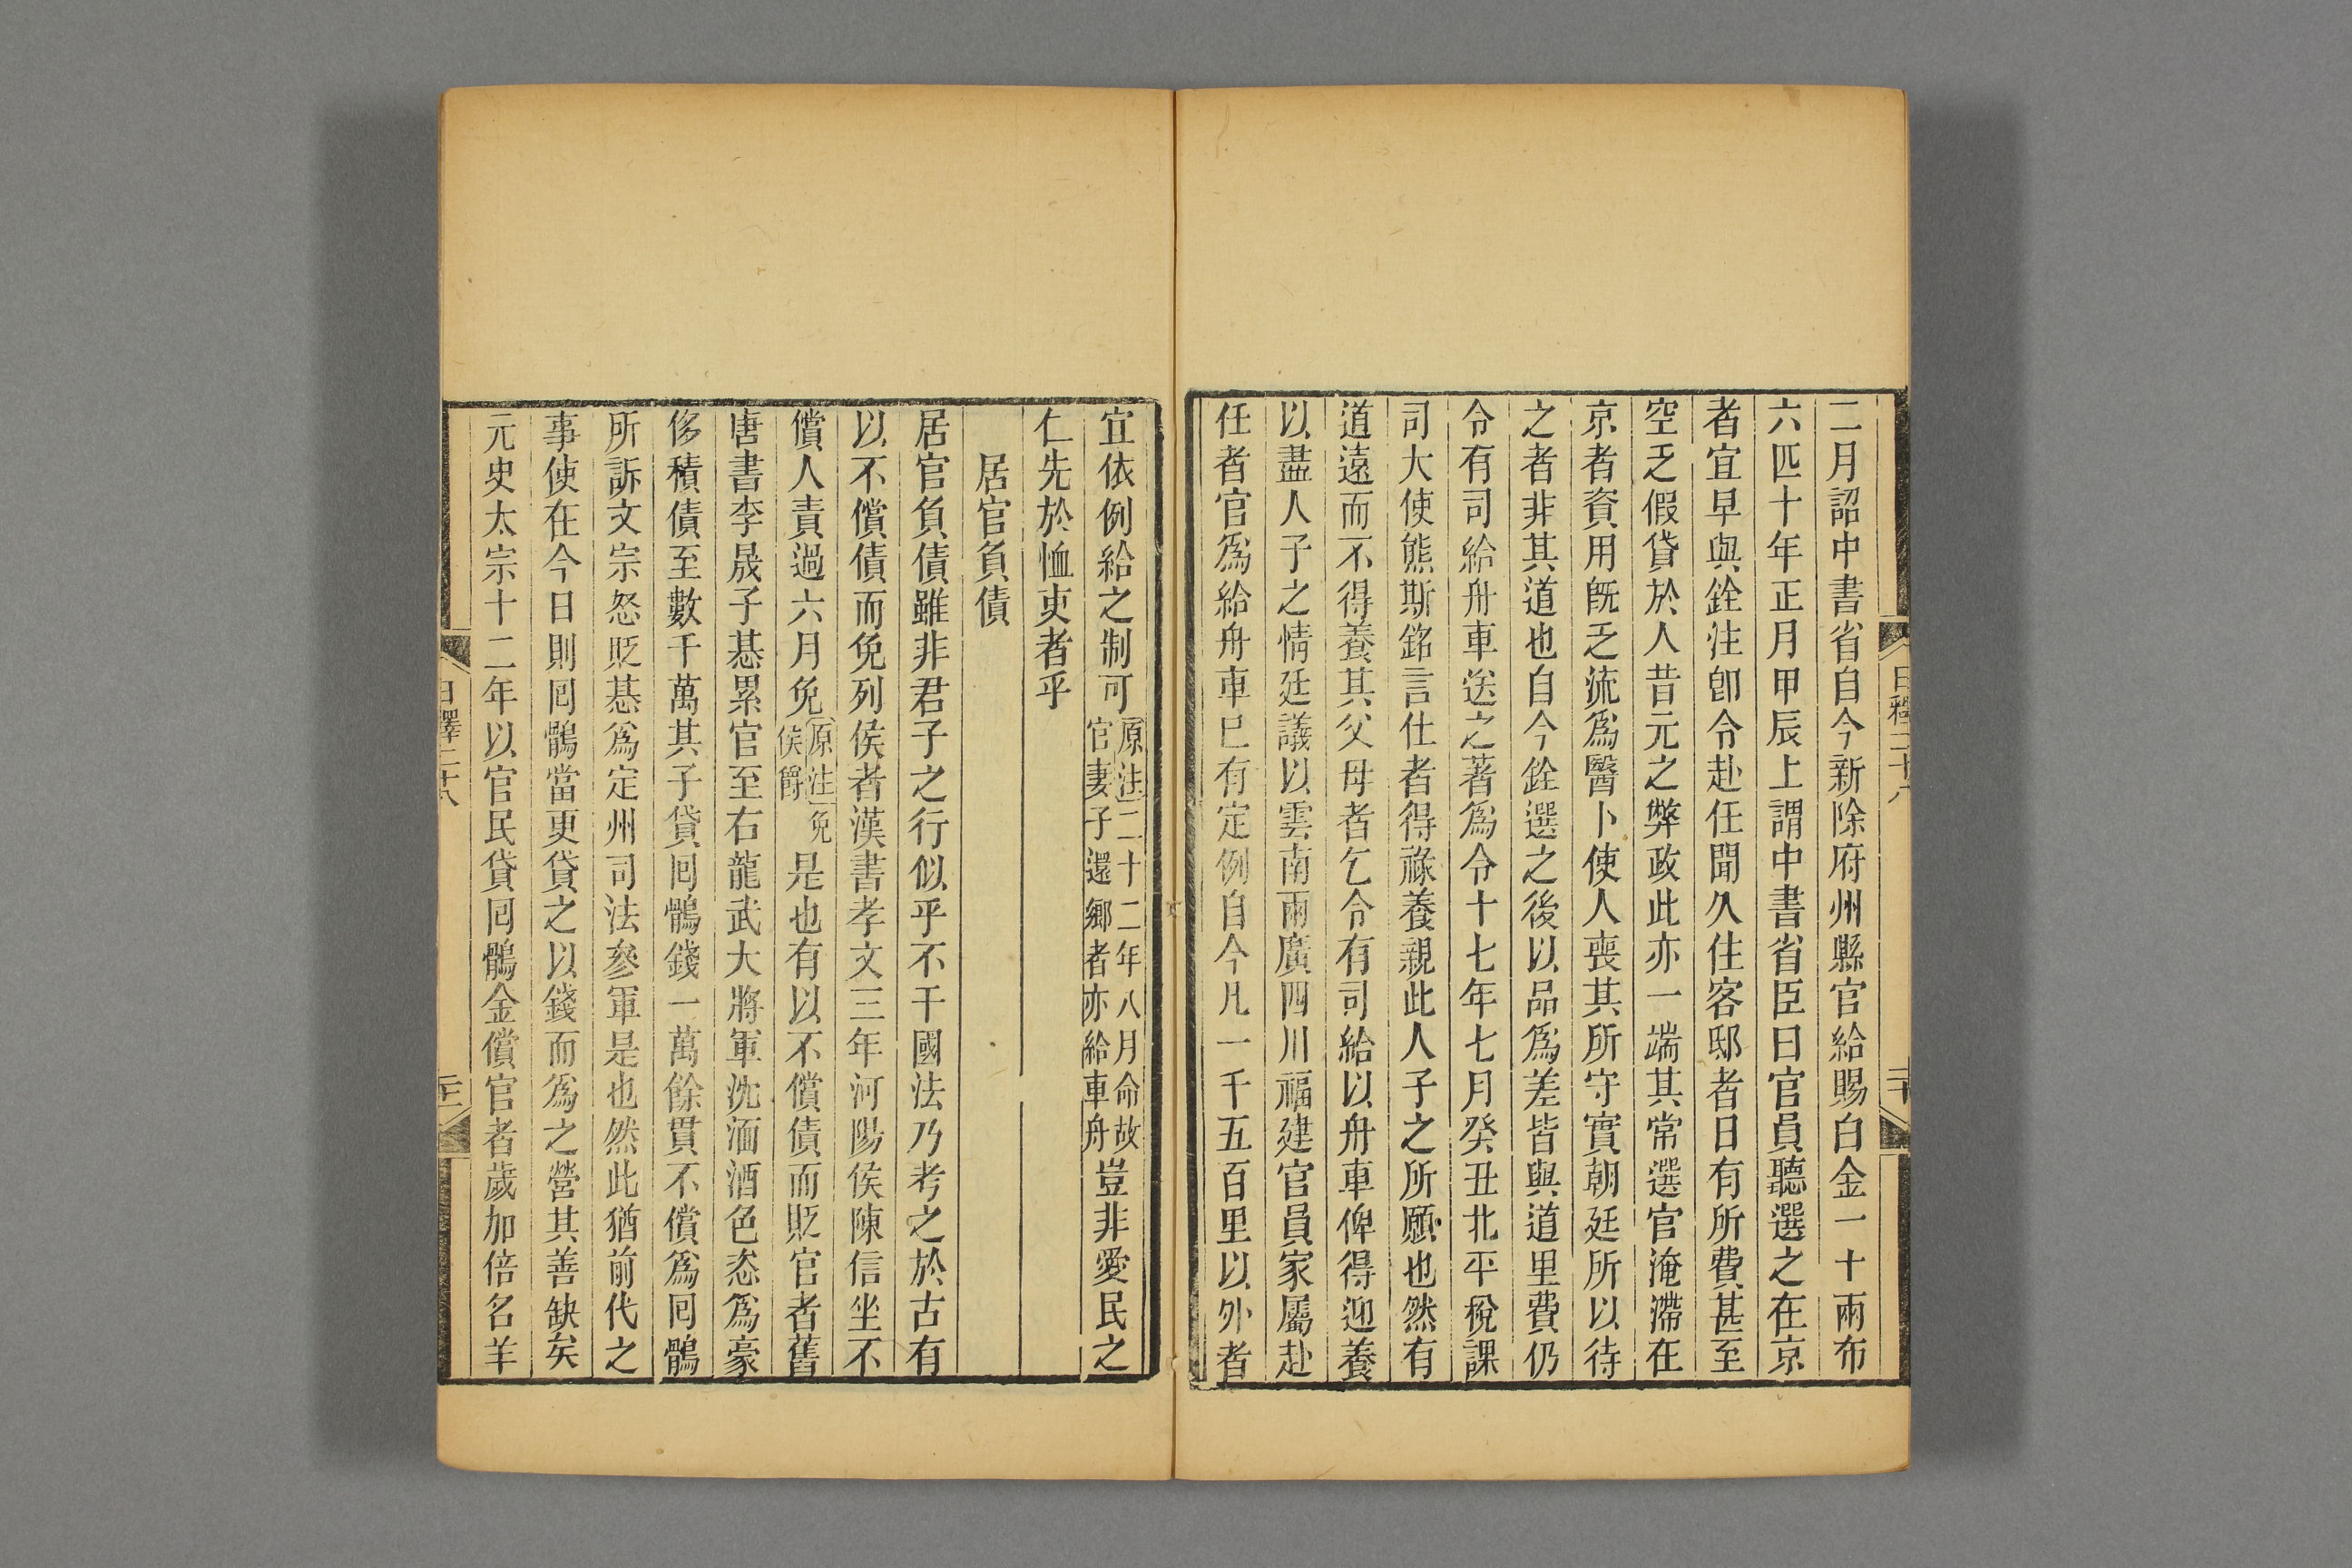 日釋二十八
二十
二月詔中書省自今新除府州縣官給賜白金一十兩布
六匹十年正月甲辰上謂中書省臣曰官員聽選之在京
者宜早與銓注卽令赴任聞久住客邸者日有所費甚至
空乏假貸於人昔元之弊政此亦一端其常選官淹滯在
京者資用旣乏流爲醫卜使人喪其所守實朝廷所以待
之者非其道也自今銓選之後以品爲差皆與道里費仍
令有司給舟車送之著爲令十七年七月癸丑北平稅課
司大使熊斯銘言仕者得祿養親此人子之所願也然有
道遠而不得養其父母者乞令有司給以舟車俾得迎養
以盡人子之情廷議以雲南兩廣四川福建官員家屬赴
任者官爲給舟車已有定例自今凡一千五百里以外者
宜依例給之制可原注二十二年八月命故官妻子還鄉者亦給車舟豈非愛民之
仁先於恤吏者乎
居官負債
居官負債雖非君子之行似乎不干國法乃考之於古有
以不償債而免列侯者漢書孝文三年河陽侯陳信坐不
償人責過六月免原注免侯爵是也有以不償債而貶官者舊
唐書李晟子惎累官至右龍武大將軍沈湎酒色恣爲豪
侈積債至數千萬其子貸回鶻錢一萬餘貫不償爲回鶻
所訴文宗怒貶惎爲定州司法參軍是也然此猶前代之
事使在今日則回鶻當更貸之以錢而爲之營其善缺矣
元史太宗十二年以官民貸回鶻金償官者歲加倍名羊
日釋二十八
二十一